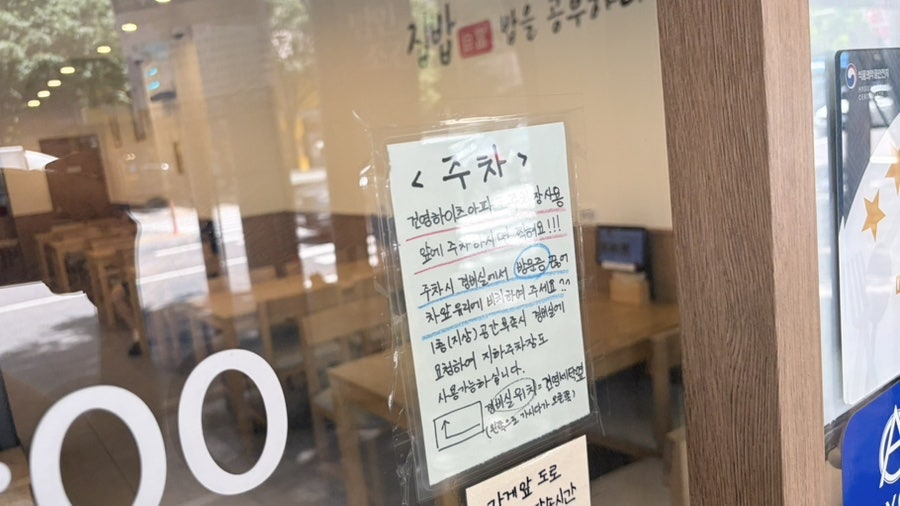 집밥 밥을 공부하다
< 주차 >
건영하이츠아파 장사용
앞에 주차하시
주차시 경비실에서 방문증 끊어
차앞유리에 비치하여 주세요^^
1층(지상)공간 부족시 경비실에
요청하여 지하주차장도
사용가능하십니다.
경비실위치=건영세탁옆
(왼쪽으로 가시다가 오른쪽)
가게앞 도로
00